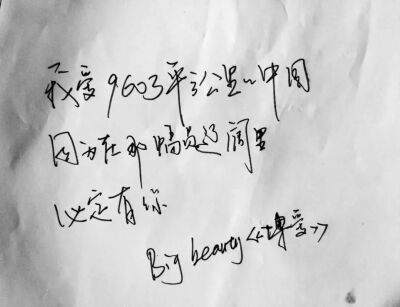 我爱9603平方公里的中国
因为在那幅员辽阔里
必定有你
Big beauty《博爱》